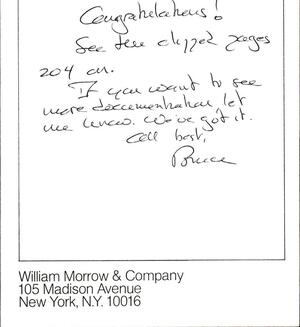 Congratulations!
See the clipped pages
204 on.
If you want to see
more documentation let
me know. We've got it.
All best,
Bruce
William Morrow & Company
105 Madison Avenue
New York, N.Y. 10016